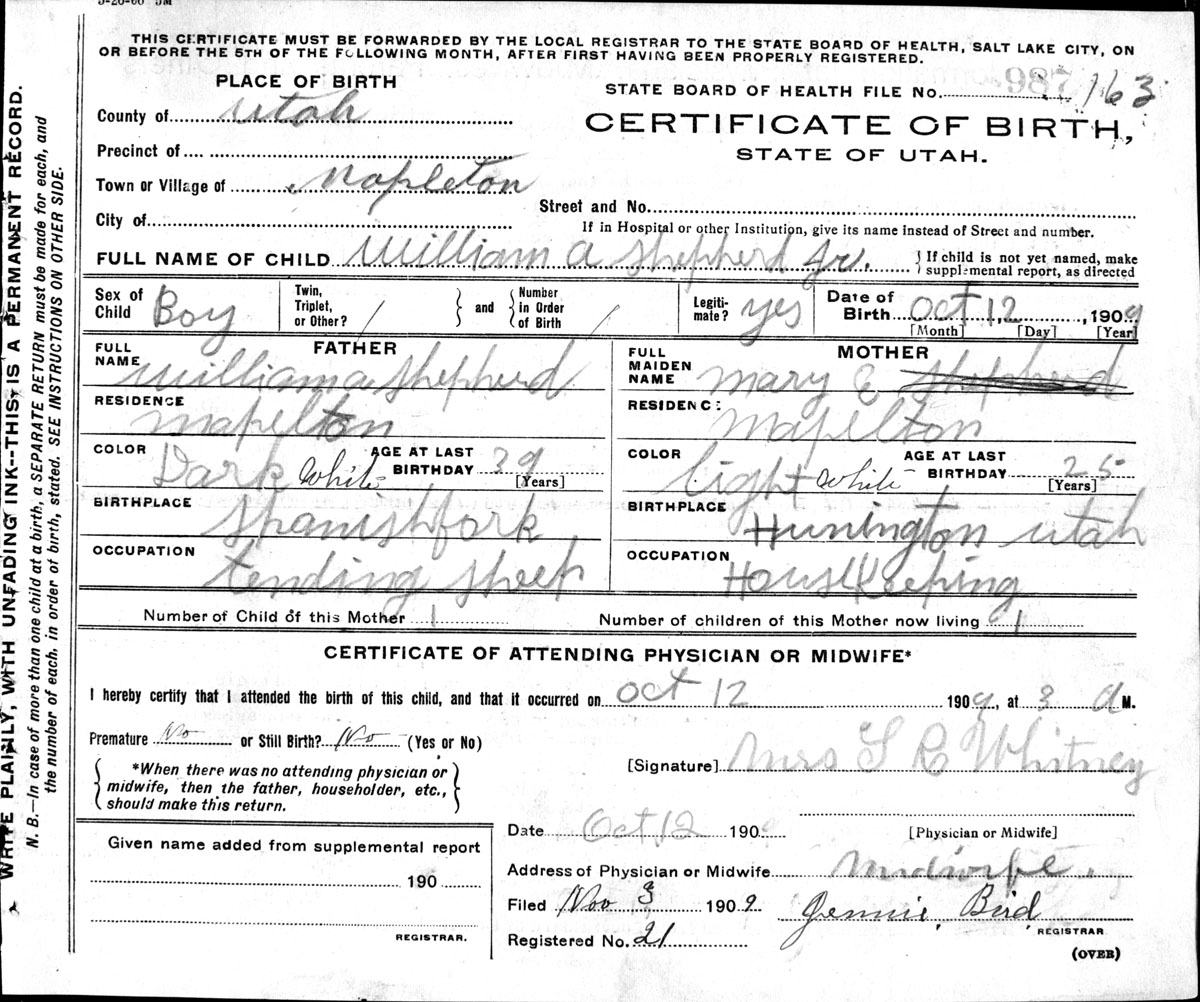 THIS CERTIFICATE MUST BE FORWARDED BY THE LOCAL REGISTRAR TO THE STATE BOARD OF HEALTH, SALT LAKE CITY, ON
OR BEFORE THE 5TH OF THE FOLLOWING MONTH, AFTER FIRST HAVING BEEN PROPERLY REGISTERED.
PLACE OF BIRTH
STATE BOARD OF HEALTH FILE No. 163
County of Utah
CERTIFICATE OF BIRTH,
STATE OF UTAH.
Precinct of
Town or Village of Mapleton
Street and No.
City of
If in Hospital or other Institution, give its name instead of Street and number.
FULL NAME OF CHILD William A Shepherd Jr. } If child is not yet named, make
supplemental report, as directed
Sex of Child Boy
Twin, Triplet, or Other? /
and
Number in Order of Birth /
Legiti-mate? yes
Date of Birth Oct 12, 1909
[Month] [Day] [Year]
FATHER
FULL NAME William a Shepherd
RESIDENCE Mapelton
COLOR Dark White
AGE AT LAST BIRTHDAY 39
[Years]
BIRTHPLACE Spanishfork
OCCUPATION tending sheep
MOTHER
FULL MAIDEN NAME Mary E Shepherd
RESIDENCE Mapelton
COLOR light White
AGE AT LAST BIRTHDAY 25
[Years]
BIRTHPLACE Hunington utah
OCCUPATION HousKeeping
Number of Child of this Mother 1
Number of children of this Mother now living 1
CERTIFICATE OF ATTENDING PHYSICIAN OR MIDWIFE*
I hereby certify that I attended the birth of this child, and that it occurred on Oct 12 1909, at 3 A M.
Premature No or Still Birth? No (Yes or No)
*When there was no attending physician or
midwife, then the father, householder, etc.,
should make this return.
[Signature] Mrs S R Whitney
Date Oct 12 190
[Physician or Midwife]
Address of Physician or Midwife
Filed Nov 3 1909. Jennie Bird
REGISTRAR
Registered No. 21
(OVER)
Given name added from supplemental report
190
REGISTRAR.
WRITE PLAINLY, WITH UNFADING INK--THIS IS A PERMANENT RECORD.
N. B.—In case of more than one child at a birth, a SEPARATE RETURN must be made for each, and
the number of each, in order of birth, stated. SEE INSTRUCTIONS ON OTHER SIDE.